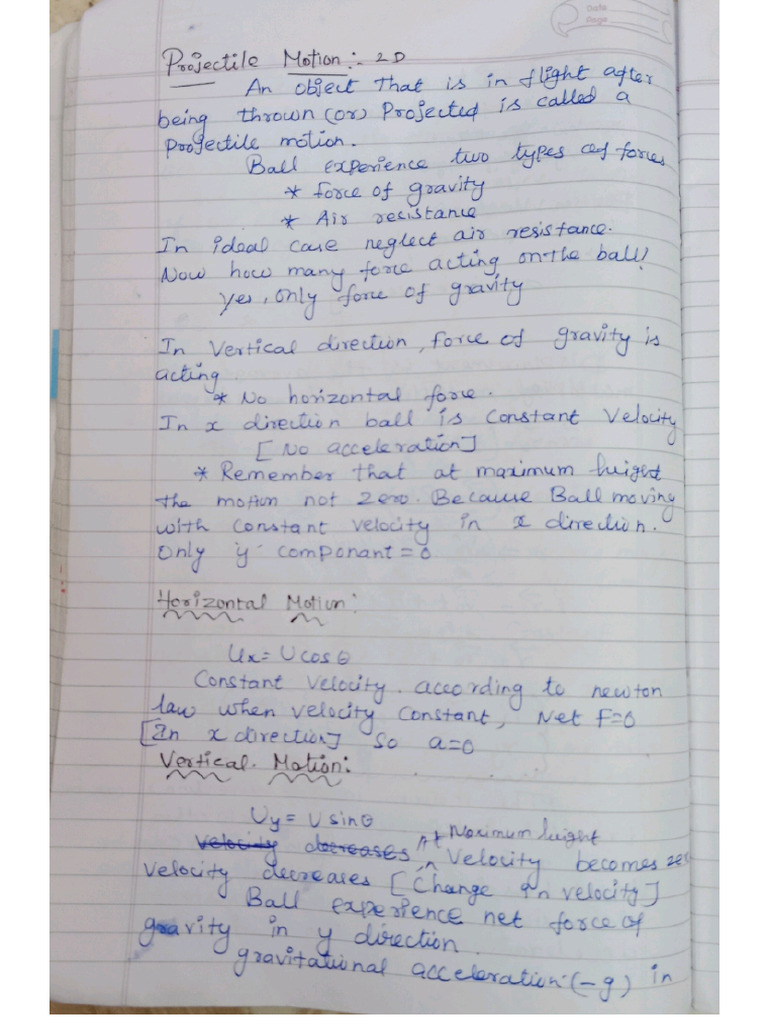 Date
Page
Projectile Motion:- 2D
An object that is in flight after
being thrown (or) Projected is called a
projectile motion.
Ball experience two types of forces
* force of gravity
* Air recistance
In ideal case neglect air resistance.
Now how many force acting on the ball!
yes, only force of gravity
In vertical direction, force of gravity is
acting.
* No horizontal force.
In x direction ball is constant velocity
[No acceleration]
* Remember that at maximum height
the motion not zero. Because Ball moving
with constant velocity in x direction.
Only y componant = 0
Horizontal Motion:
Ux = U cos θ
Constant velocity. according to newton
law when velocity constant, Net F=0
[In x direction] so a=0
Vertical Motion:
Uy = U sin θ
velocity decreases, At Maximum height velocity becomes zero
velocity decreases [change in velocity]
Ball experience net force of
gravity in y direction.
gravitational acceleration (-g) in